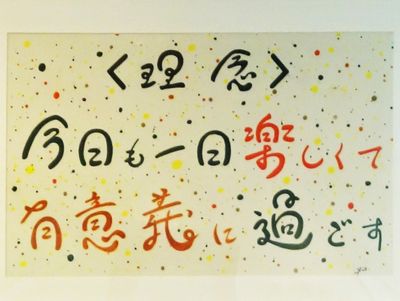 <理念>
今日も一日楽しくて
有意義に過ごす